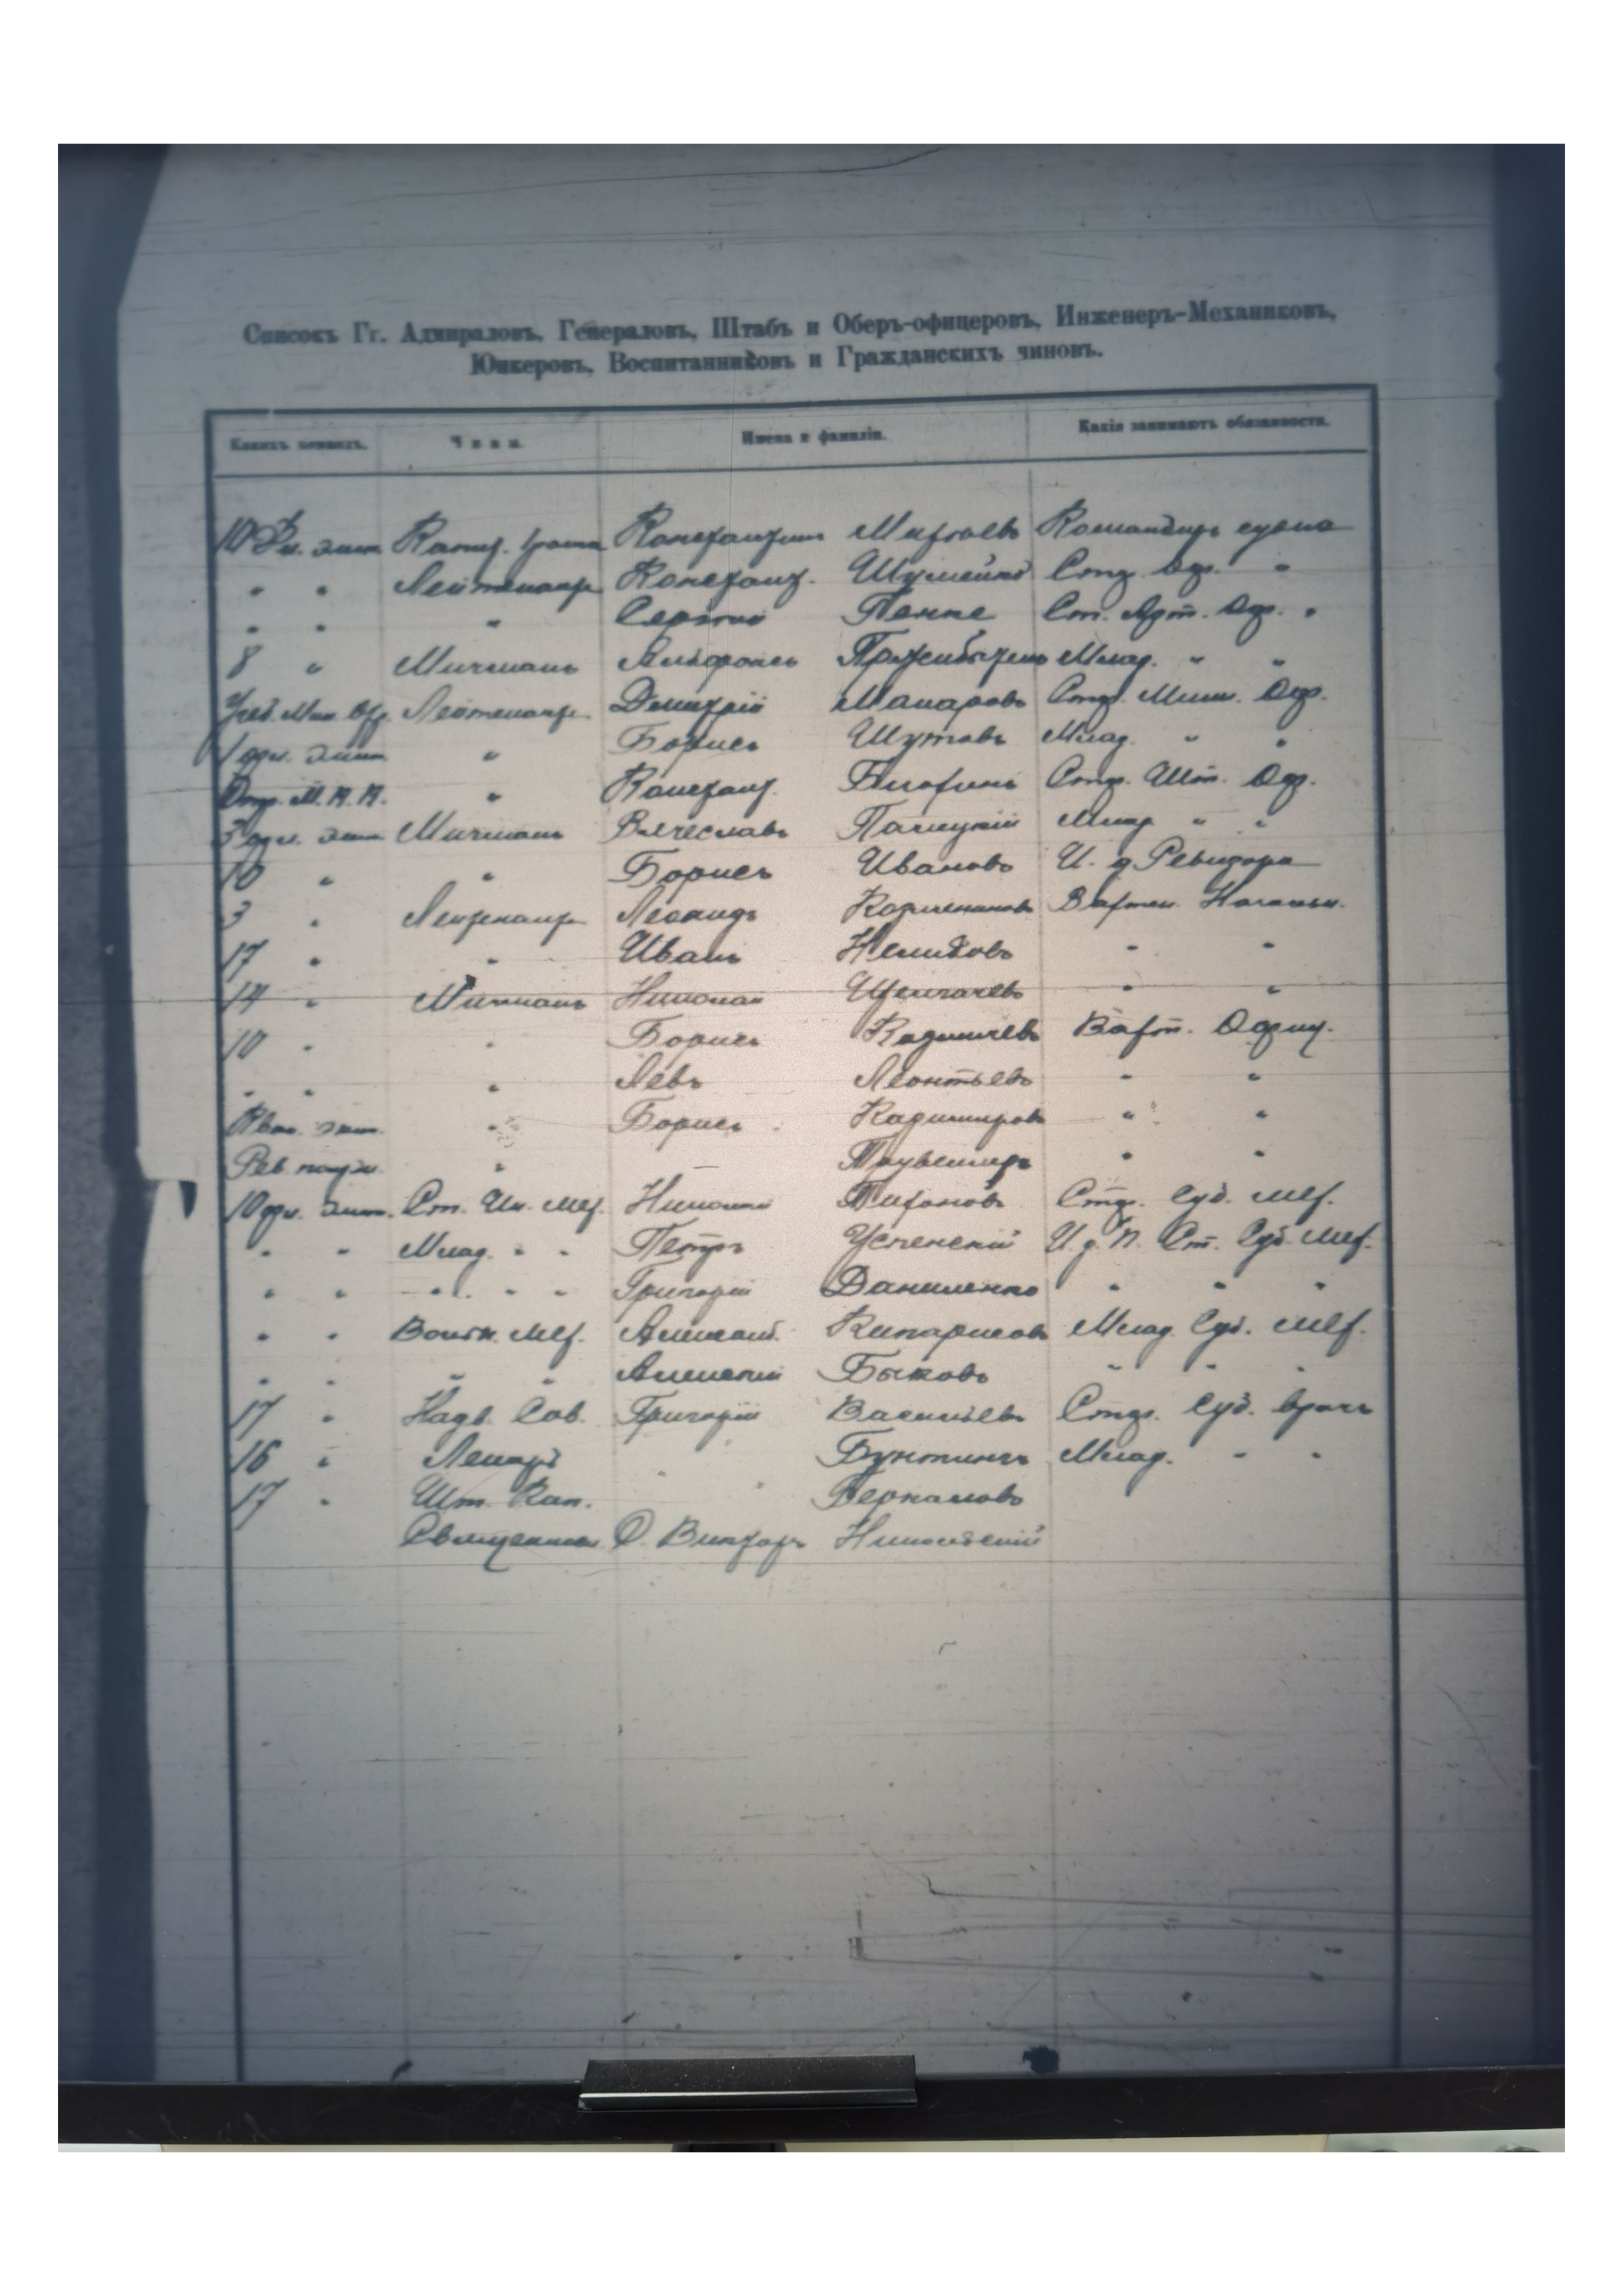 Списокъ Гг. Адмираловъ, Генераловъ, Штабъ и Оберъ-офицеровъ, Инженеръ-Механиковъ,
Юнкеровъ, Воспитанниковъ и Гражданскихъ чиновъ.
Какихъ командъ. Чины. Имена и фамиліи. Какія занимаютъ обязанности.
10 Фл. экип. Капит. 1 ранга Командиръ судна
" " Лейтенантъ Констант. Шумейко Стар. Оф. "
" " " Сергѣй Пенке Ст. Арт. Оф. "
8 " Мичманъ Альфонсъ Млад. " "
Учеб. Мин. Отр. Лейтенантъ Дмитрій Макаровъ Стар. Мин. Оф.
1 фл. экип. " Борисъ Шутовъ Млад. " "
" Констант. Стар. Шт. Оф.
3 фл. экип. Мичманъ Вячеславъ Млад. " "
10 " " Борисъ Ивановъ И. д. Ревизора
3 " Лейтенантъ Леонидъ Вахтен. Начальн.
17 " " Иванъ Нелидовъ " "
14 " Мичманъ Николай " "
10 " " Борисъ Вахт. Офиц.
" " " Левъ Леонтьевъ " "
Квам. экип. " Борисъ " "
" " "
10 фл. экип. Ст. Ин. Мех. Николай Тихоновъ Стар. Суд. Мех.
" " Млад. " " Петръ Успенскій И. д. П. Ст. Суд. Мех.
" " " " " Григорій Даниленко " " "
" " Кипарисовъ Млад. Суд. Мех.
" " " " Алексѣй Быковъ " " "
17 " Надв. Сов. Григорій Васильевъ Стар. Суд. Врачъ
16 " Лекарь Бунтингъ Млад. " "
17 " Шт. Кап. Беркаловъ
Священникъ О. Викторъ Никольскій